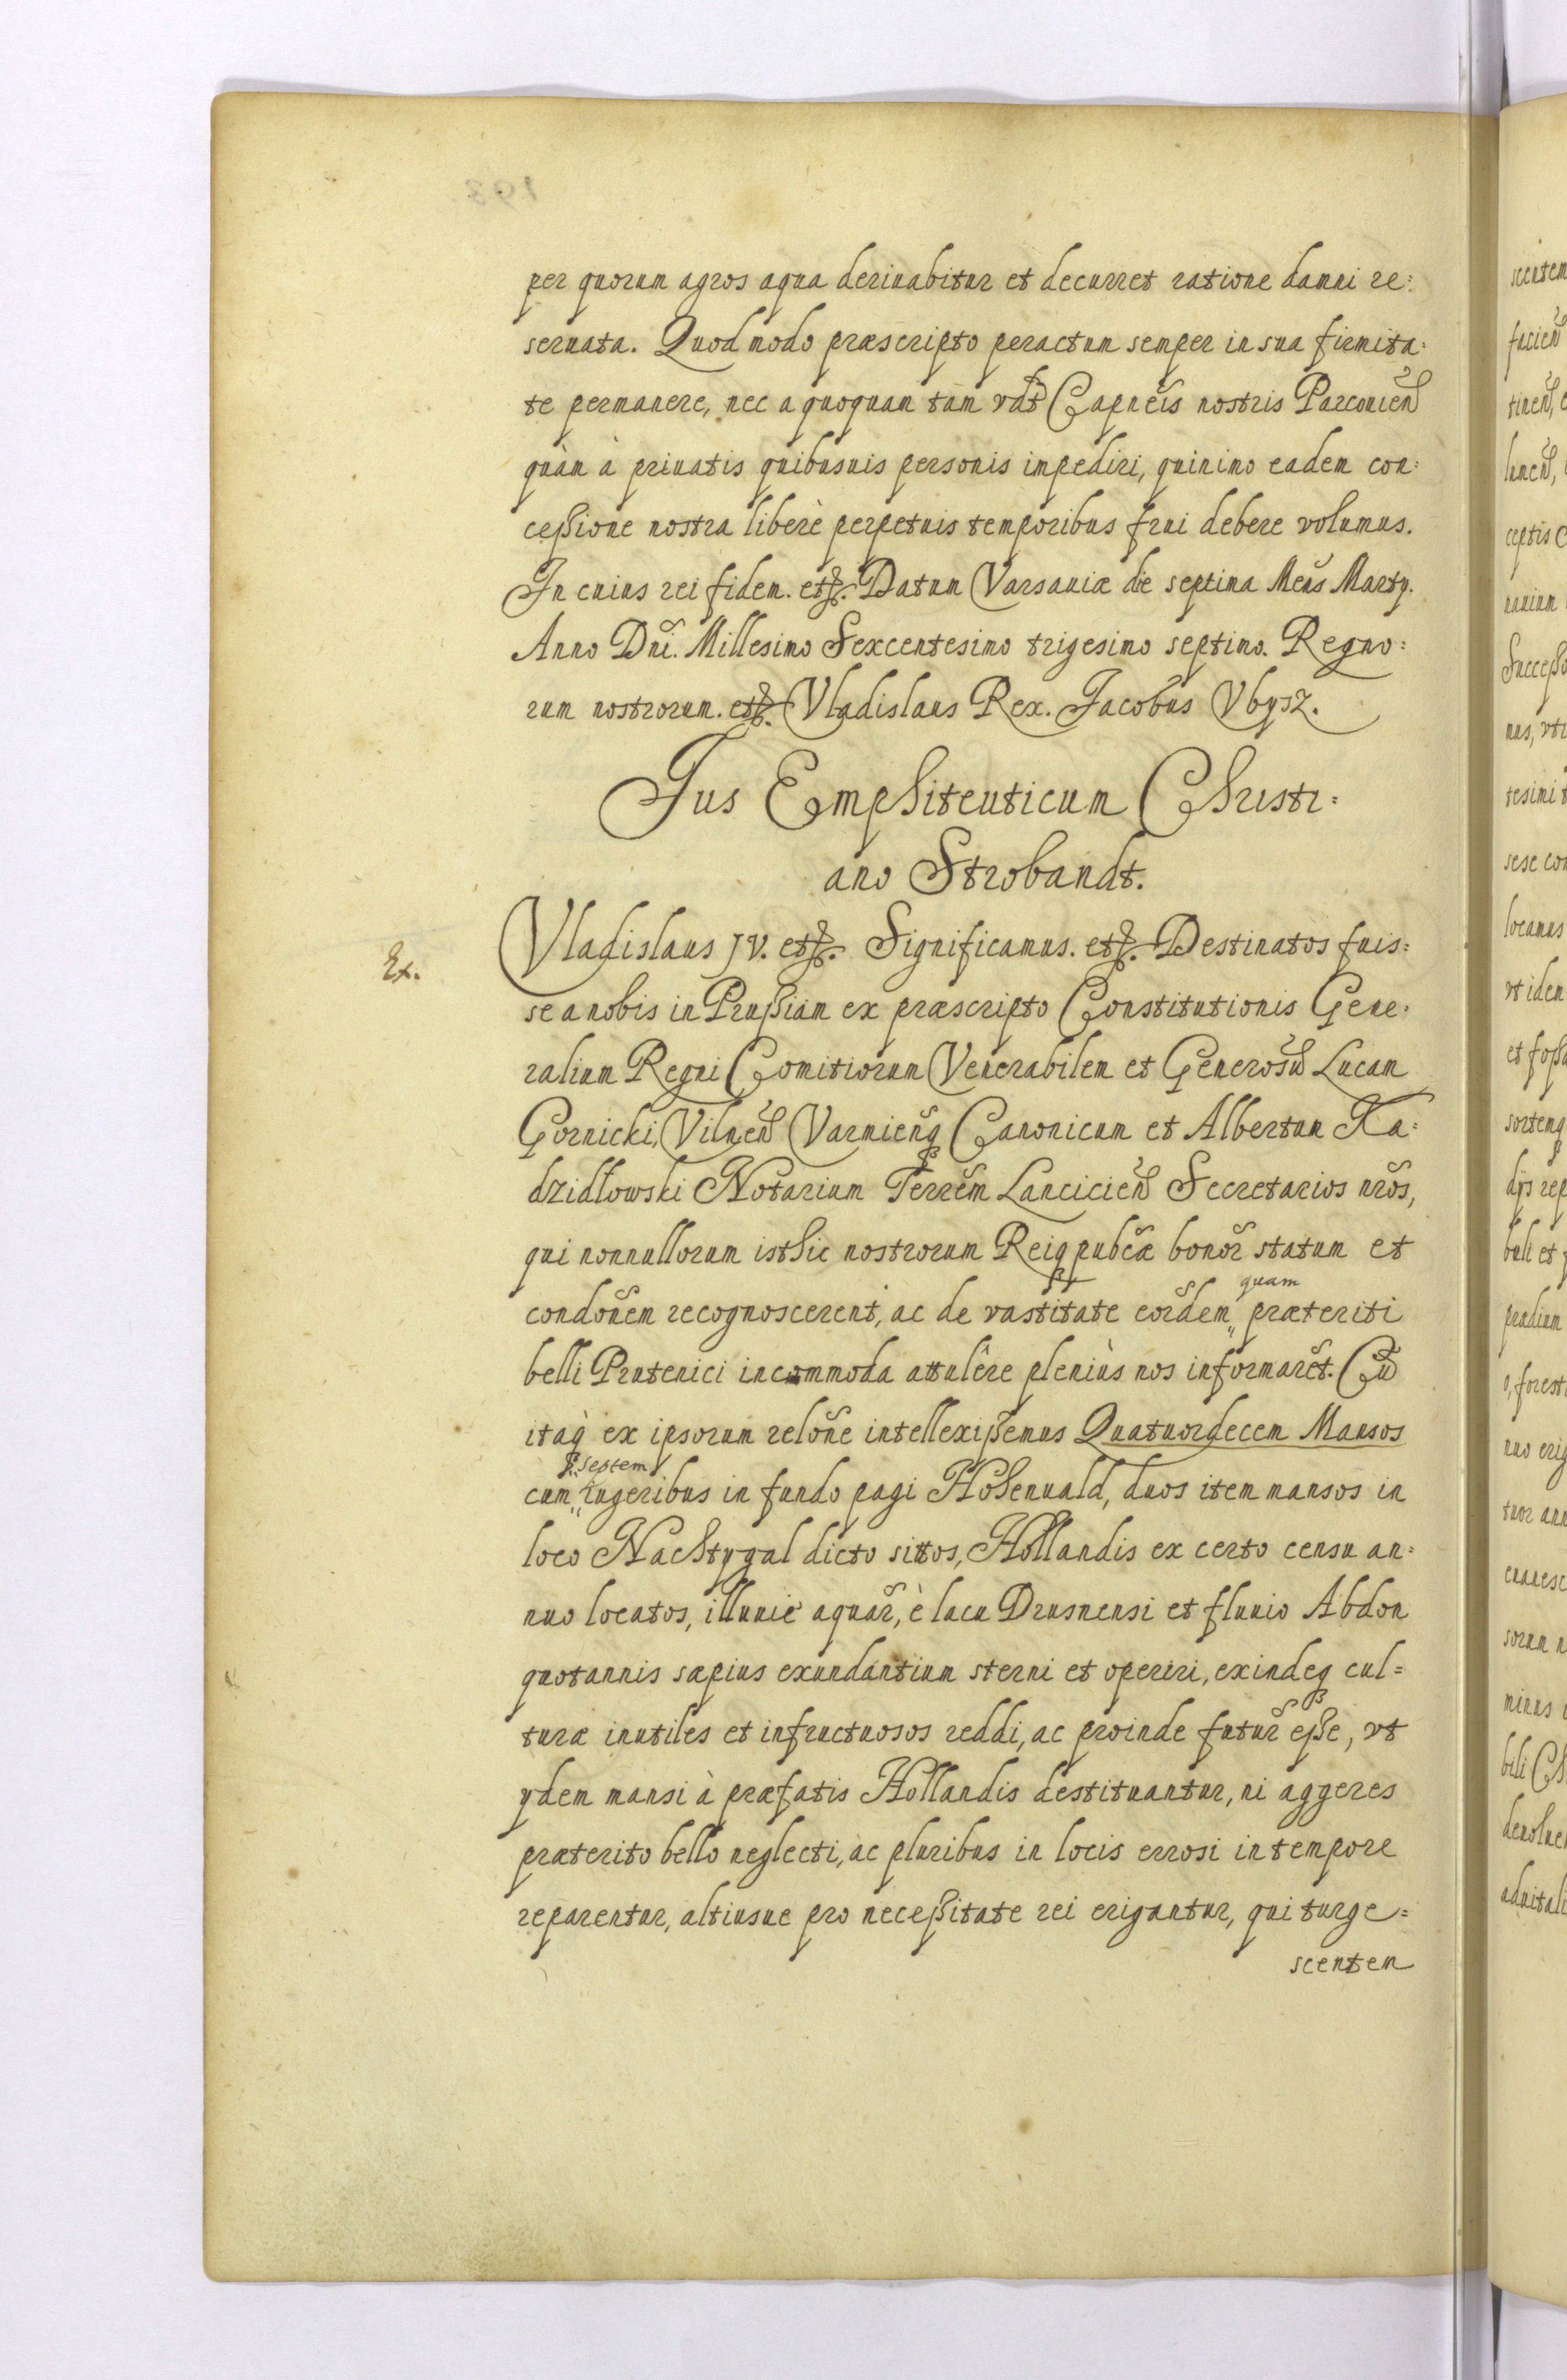 per quorum agros aqua deriuabitur et decurret ratione damni re:
seruata. Quod modo præscripto peractum semper in sua firmita:
te permanere, nec a quoquam tam Capneis nostris Parcouien
quàm à priuatis quibusuis personis impediri, quinimo eadem con:
cessione nostra liberè perpetuis temporibus frui debere volumus.
In cuius rei fidem. etc. Datum Varsauiæ die septima Mens Marty.
Anno Dni. Millesimo Sexcentesimo trigesimo septimo. Regno:
rum nostrorum. etc. Vladislaus Rex. Jacobus Vbysz.
Jus Emphiteuticum Christi:
ano Strobandt.
Ex.
Vladislaus JV. etc. Significamus. etc. Destinatos fuis:
se a nobis in Prussiam ex præscripto Constitutionis Gene:
ralium Regni Comitiorum Venerabilem et Generosu Lucam
Gornicki, Vilnen Varmienq Canonicum et Albertum Ka:
dzidłowski Notarium Terrem Lancicien Secretarios nros,
qui nonnullorum isthic nostrorum Reiq pubcæ bonor statum et
condonem recognoscerent, ac de vastitate eordem quam præteriti
belli Prutenici incommoda attulêre pleniùs nos informaret. Cu
itaq ex ipsorum relone intellexissemus Quatuordecem Mansos
cum septem iugeribus in fundo pagi Hohenuald, duos item mansos in
loco Nachtygal dicto sittos, Hollandis ex certo censu an:
nuo locatos, illuuie aquar, è lacu Drusnensi et fluuio Abdon
quotannis sæpius exundantium sterni et operiri, exindeq cul=
turæ inutiles et infructuosos reddi, ac proinde futur esse, vt
ydem mansi à præfatis Hollandis destituantur, ni aggeres
præterito bello neglecti, ac pluribus in locis errosi in tempore
reparentur, altiusue pro necessitate rei erigantur, qui turge=
scentem